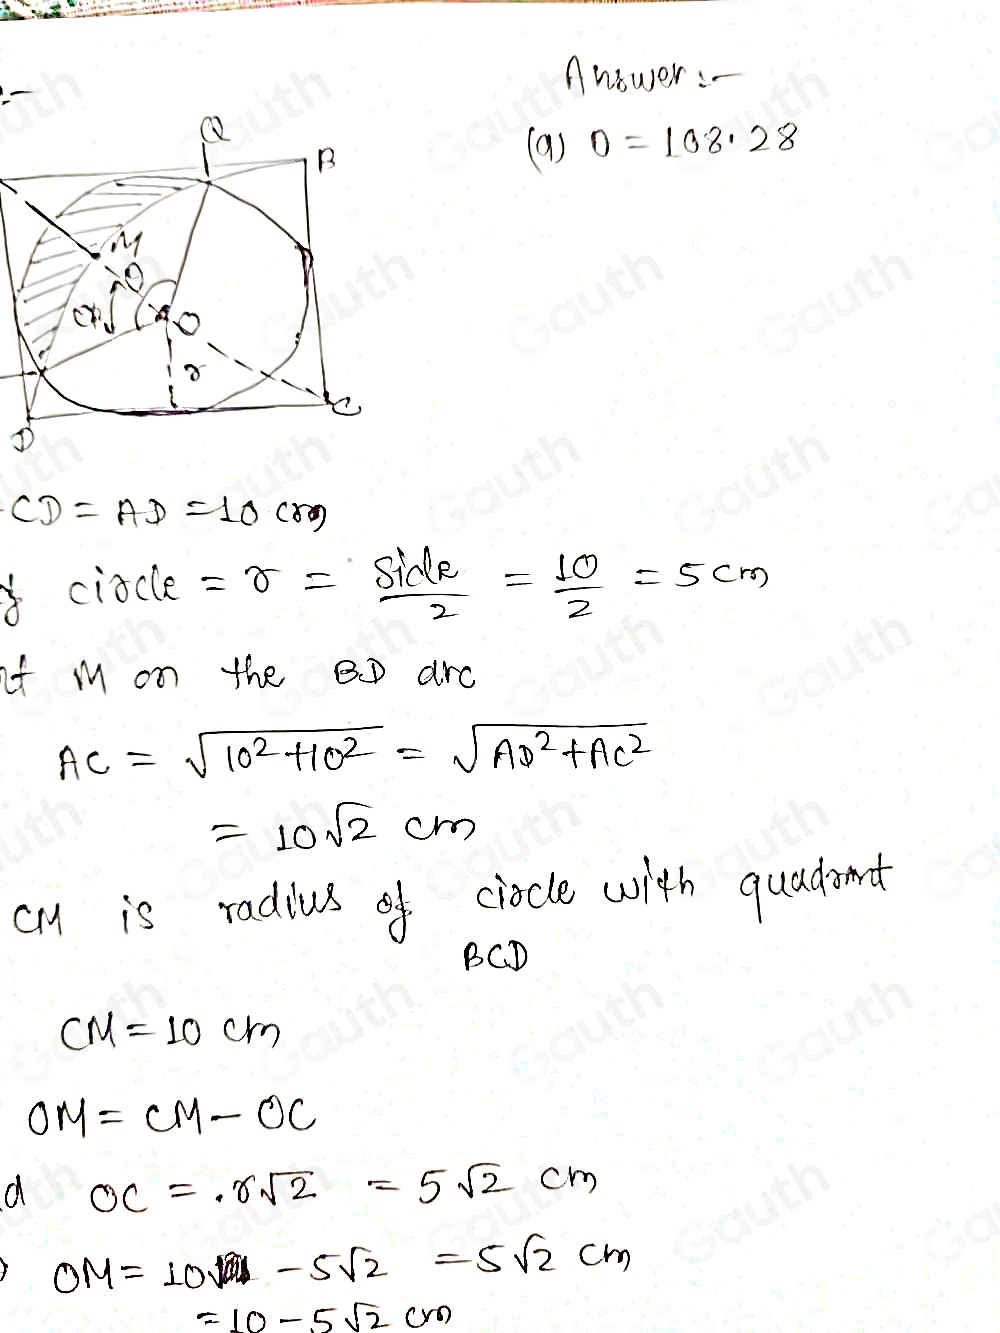 :-
Answer :-
(a) θ = 108.28
Q
B
M
θ
O
r
C
D
CD = AD = 10 cm
circle = r = side/2 = 10/2 = 5 cm
M on the BD arc
AC = √10²+10² = √AD²+AC²
= 10√2 cm
CM is radius of circle with quadrant
BCD
CM = 10 cm
OM = CM - OC
d OC = .r√2 = 5√2 cm
OM = 10 - 5√2 = 5√2 cm
= 10 - 5√2 cm
Gauth